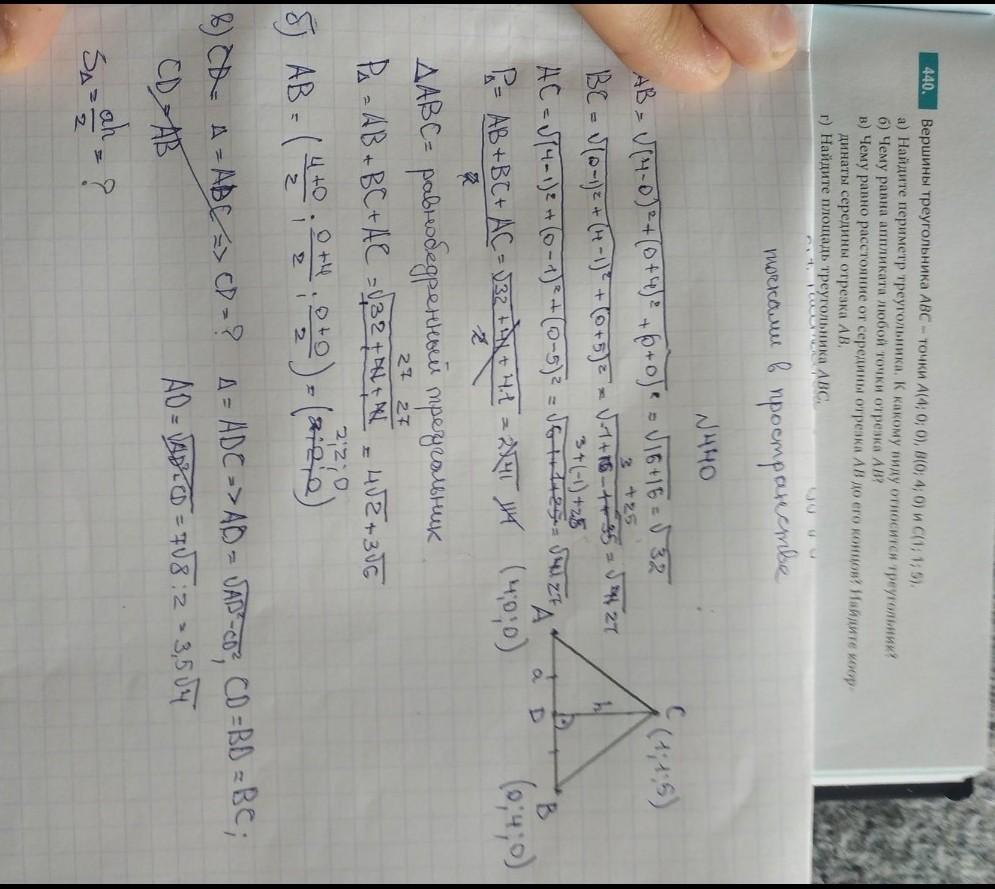 440. Вершины треугольника ABC – точки A(4; 0; 0), B(0; 4; 0) и C(1; 1; 5).
а) Найдите периметр треугольника. К какому виду относится треугольник?
б) Чему равна аппликата любой точки отрезка AB?
в) Чему равно расстояние от середины отрезка AB до его концов? Найдите коор-
динаты середины отрезка AB.
г) Найдите площадь треугольника ABC.
точками в пространстве
№440
AB = √(4-0)² + (0+4)² + (0+0)² = √16+16 = √32
BC = √(0-1)² + (4-1)² + (0+5)² =
AC = √(4-1)² + (0-1)² + (0-5)² =
3+(-1)+25
C (1; 1; 5)
h
A
a
D
B
(4; 0; 0)
(0; 4; 0)
P△ = AB + BC + AC =
△ABC = равнобедренный треугольник
P△ = AB + BC + AC =
27 27
= 4√2 + 3√6
б) AB = (4+0/2; 0+4/2; 0+0/2) =
2; 2; 0
в) △ = ABC => CD = ? △ = ADC => AD = √AD²-CD², CD = BD = BC;
CD = AB
AD = √AD²-CD = 7√8 : 2 = 3,5√4
S△ = ah/2 = ?